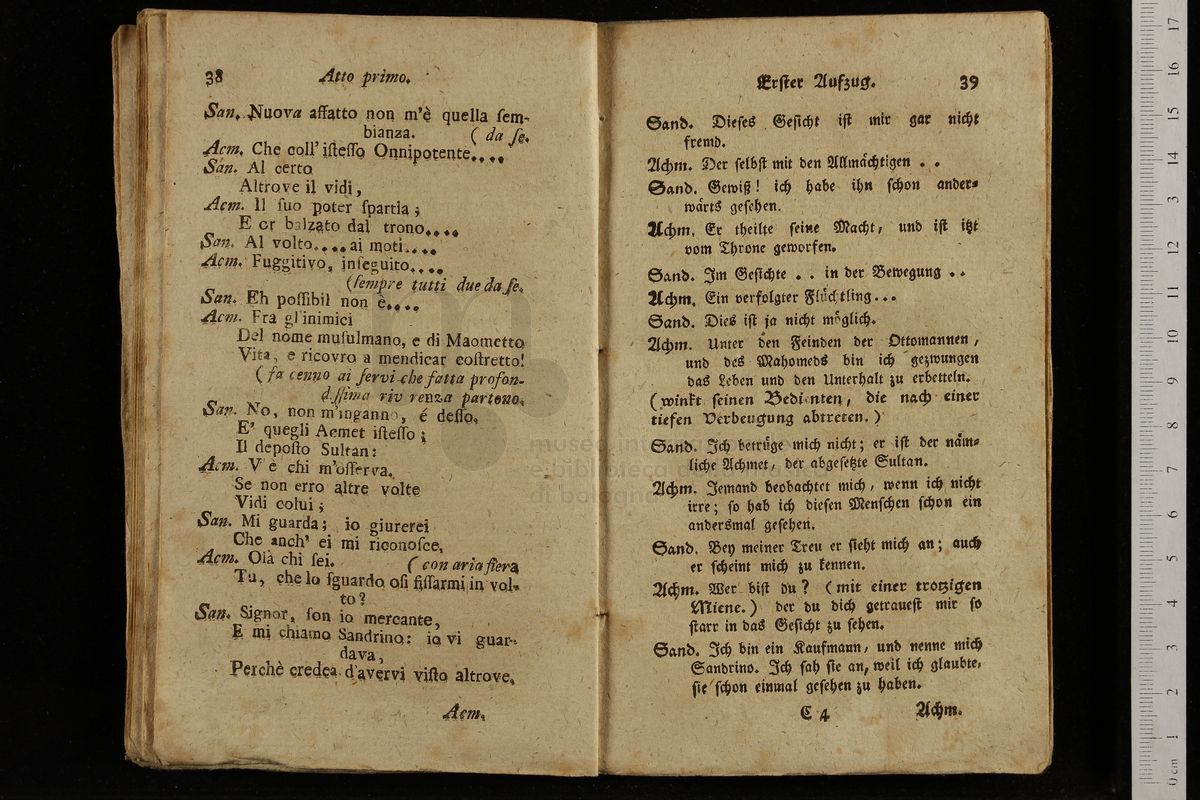 38 Atto primo.
San. Nuova affatto non m'è quella ſem-
bianza. ( da ſe.
Acm. Che coll' iſteſſo Onnipotente....
San. Al certo
Altrove il vidi,
Acm. Il ſuo poter ſpartia;
E or balzato dal trono....
San. Al volto.... ai moti....
Acm. Fuggitivo, inſeguito....
(ſempre tutti due da ſe.
San. Eh poſſibil non è....
Acm. Fra gl'inimici
Del nome muſulmano, e di Maometto
Vita, e ricovro a mendicar coſtretto!
( fa cenno ai ſervi che fatta profon-
diſſima riverenza partono.
San. No, non m'inganno, é deſſo.
E' quegli Acmet iſteſſo;
Il depoſto Sultan:
Acm. V'è chi m'oſſerva.
Se non erro altre volte
Vidi colui;
San. Mi guarda; io giurerei
Che anch' ei mi riconoſce,
Acm. Olà chi ſei. ( con aria fiera
Tu, che lo ſguardo oſi fiſſarmi in vol-
to?
San. Signor, ſon io mercante,
E mi chiamo Sandrino: io vi guar-
dava,
Perchè credea d'avervi viſto altrove.
Acm.
Erſter Aufzug. 39
Sand. Dieſes Geſicht iſt mir gar nicht
fremd.
Achm. Der ſelbſt mit den Allmächtigen . .
Sand. Gewiß! ich habe ihn ſchon ander-
wärts geſehen.
Achm. Er theilte ſeine Macht, und iſt itzt
vom Throne geworfen.
Sand. Im Geſichte . . in der Bewegung . .
Achm. Ein verfolgter Flüchtling...
Sand. Dies iſt ja nicht möglich.
Achm. Unter den Feinden der Ottomannen,
und des Mahomeds bin ich gezwungen
das Leben und den Unterhalt zu erbetteln.
(winkt ſeinen Bedienten, die nach einer
tiefen Verbeugung abtreten.)
Sand. Ich betrüge mich nicht; er iſt der näm-
liche Achmet, der abgeſetzte Sultan.
Achm. Jemand beobachtet mich, wenn ich nicht
irre; ſo hab ich dieſen Menſchen ſchon ein
andersmal geſehen.
Sand. Bey meiner Treu er ſieht mich an; auch
er ſcheint mich zu kennen.
Achm. Wer biſt du? (mit einer trotzigen
Miene.) der du dich getraueſt mir ſo
ſtarr in das Geſicht zu ſehen.
Sand. Ich bin ein Kaufmann, und nenne mich
Sandrino. Ich ſah ſie an, weil ich glaubte,
ſie ſchon einmal geſehen zu haben.
C 4 Achm.